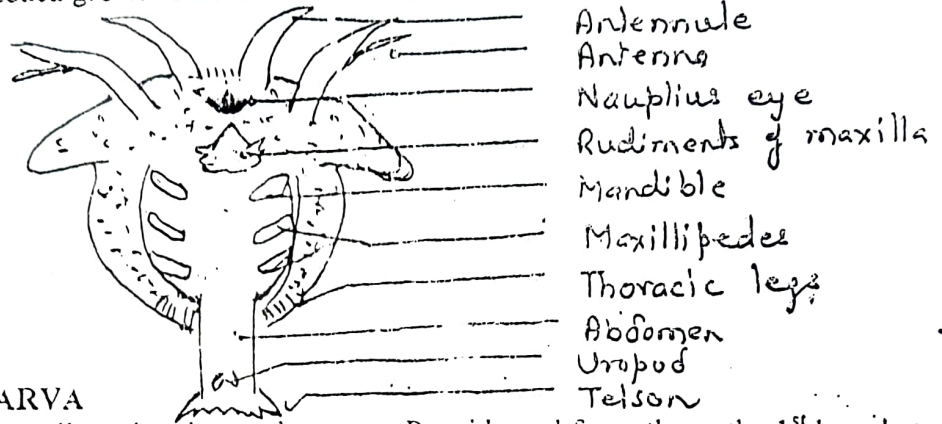 Antennule
Antenna
Nauplius eye
Rudiments of maxilla
Mandible
Maxillipedes
Thoracic legs
Abdomen
Uropod
Telson
ARVA